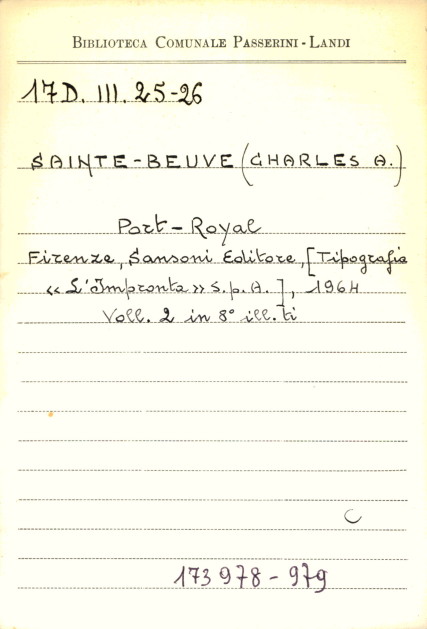 BIBLIOTECA COMUNALE PASSERINI - LANDI
17D. III. 25-26
SAINTE-BEUVE (CHARLES A.)
Port-Royal
Firenze, Sansoni Editore, [Tipografia
«L'Impronta» S.p.A.], 1964
Voll. 2 in 8° ill.ti
C
173978-979